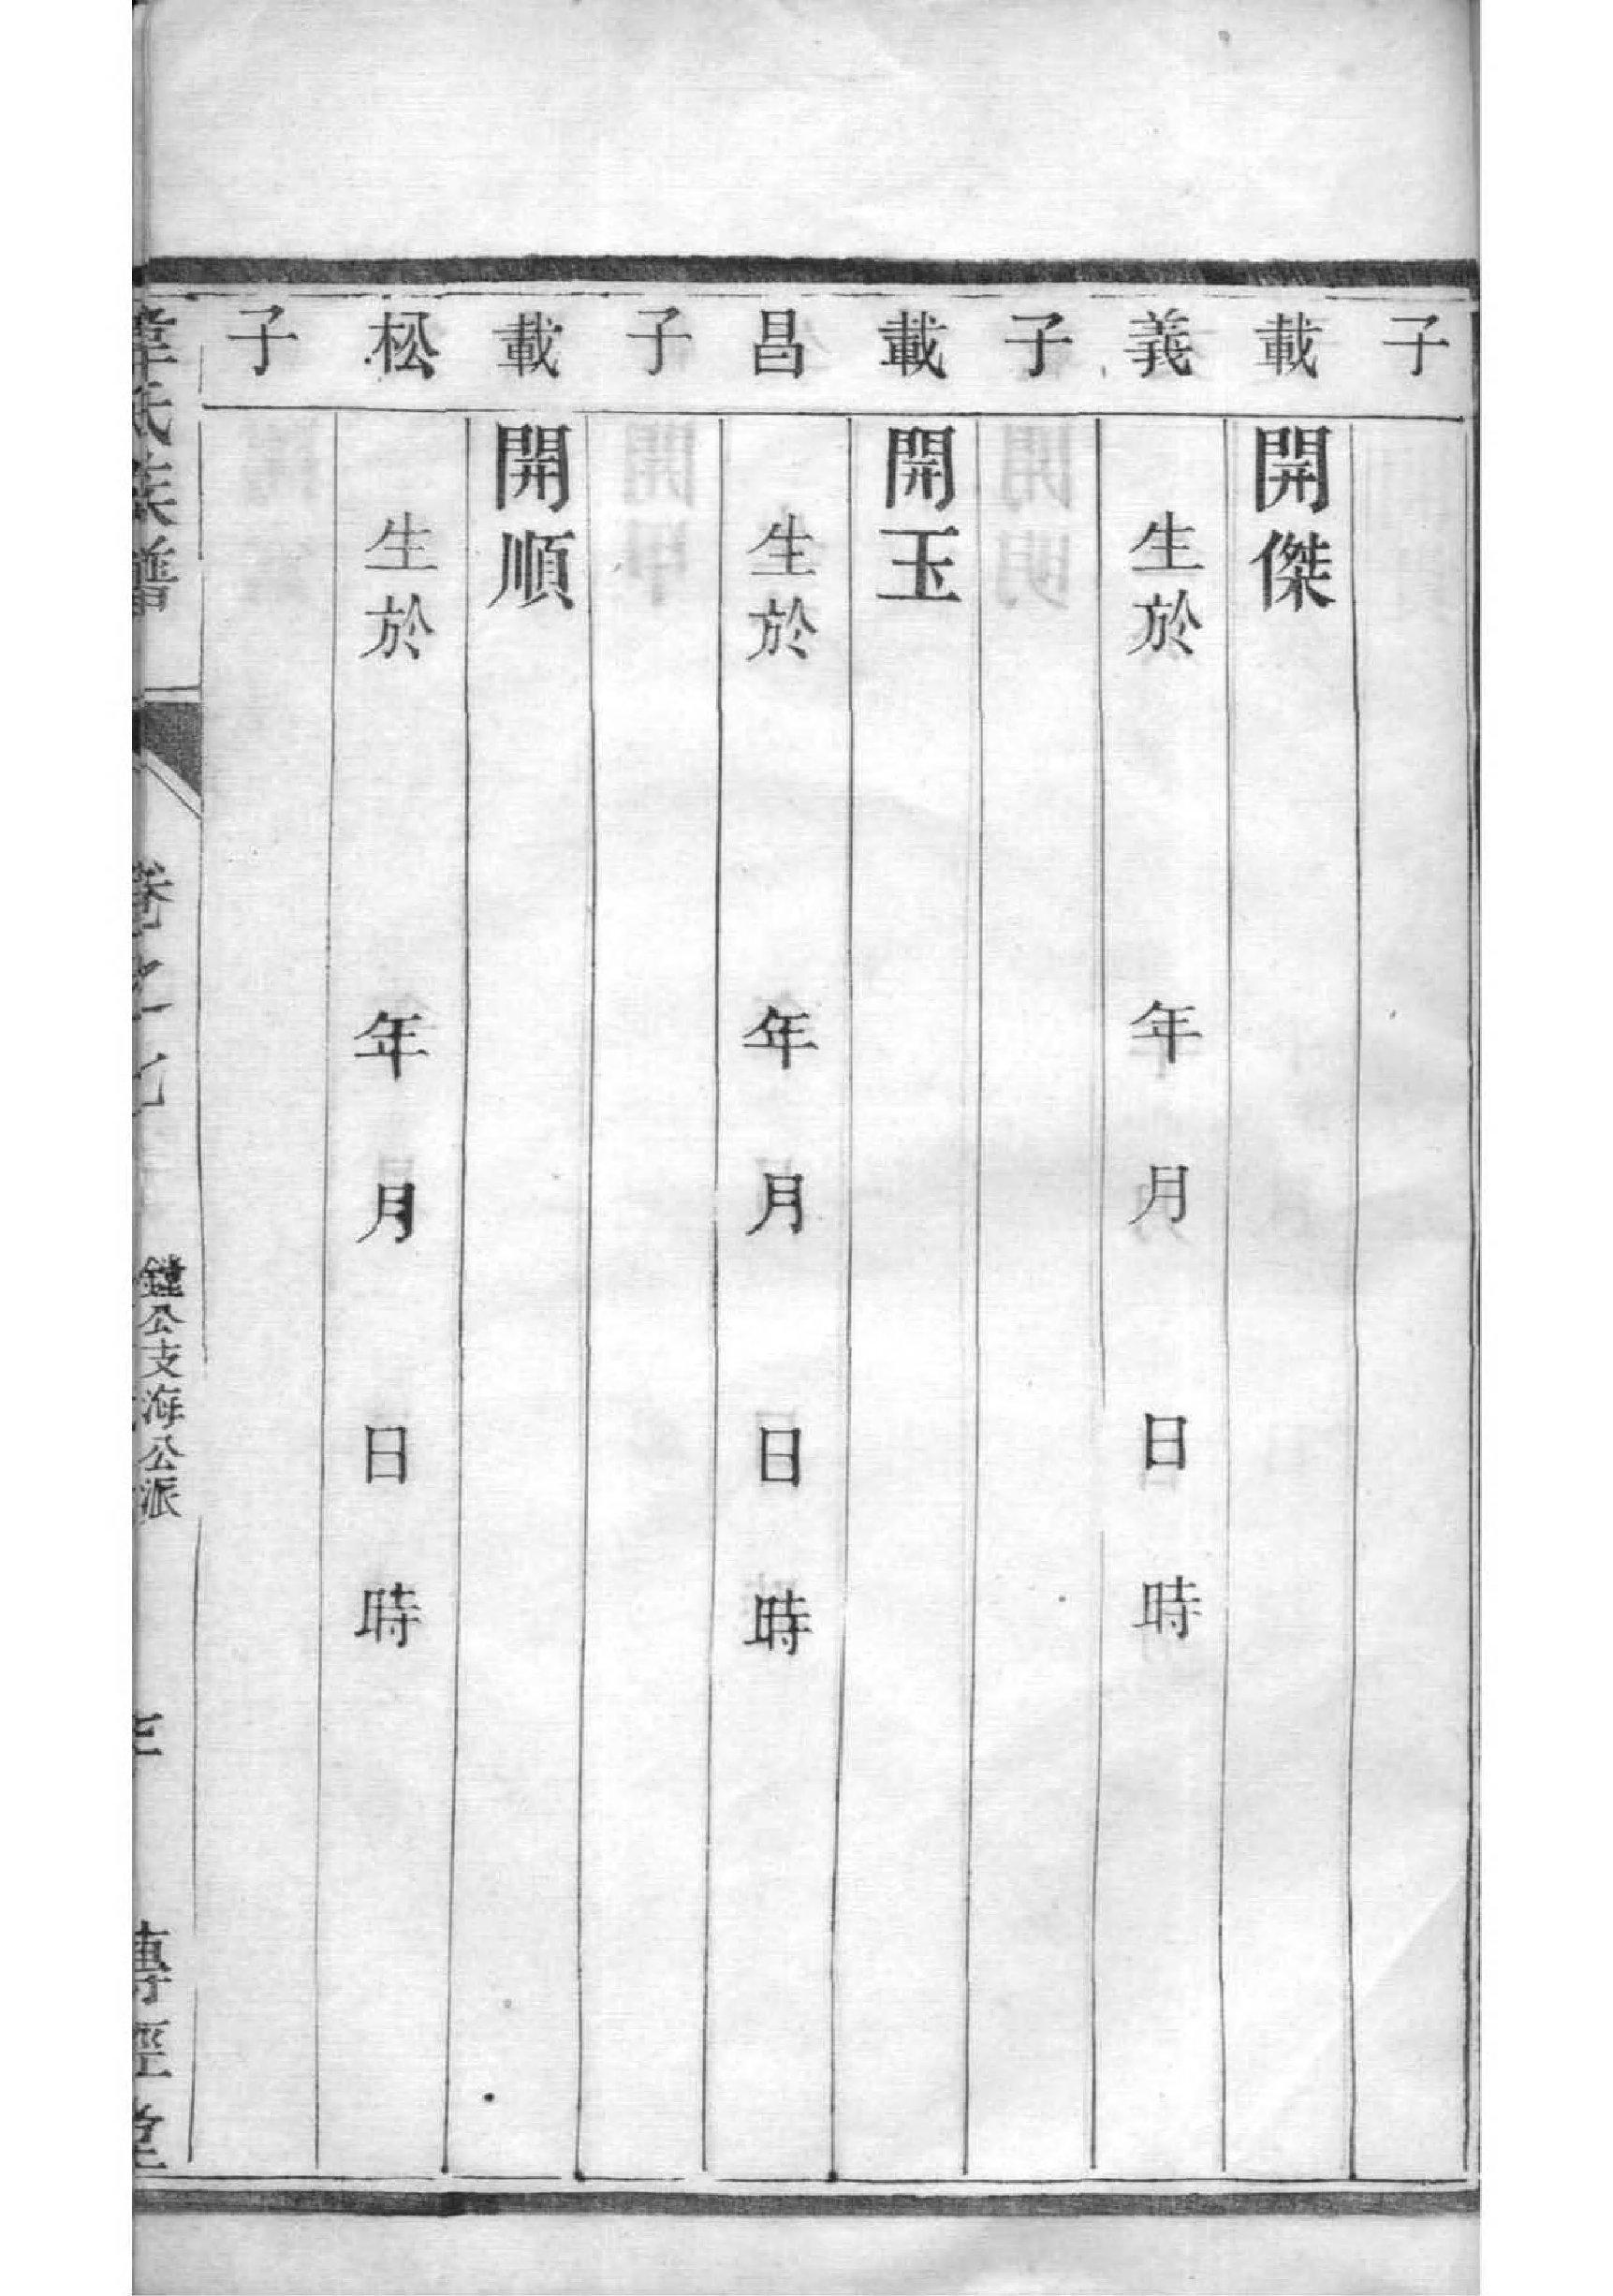 子
載 開傑
義 生於 年 月 日 時
子
載 開玉
昌 生於 年 月 日 時
子
載 開順
松 生於 年 月 日 時
子
韋氏族譜 卷之 公支海公派 傳經堂